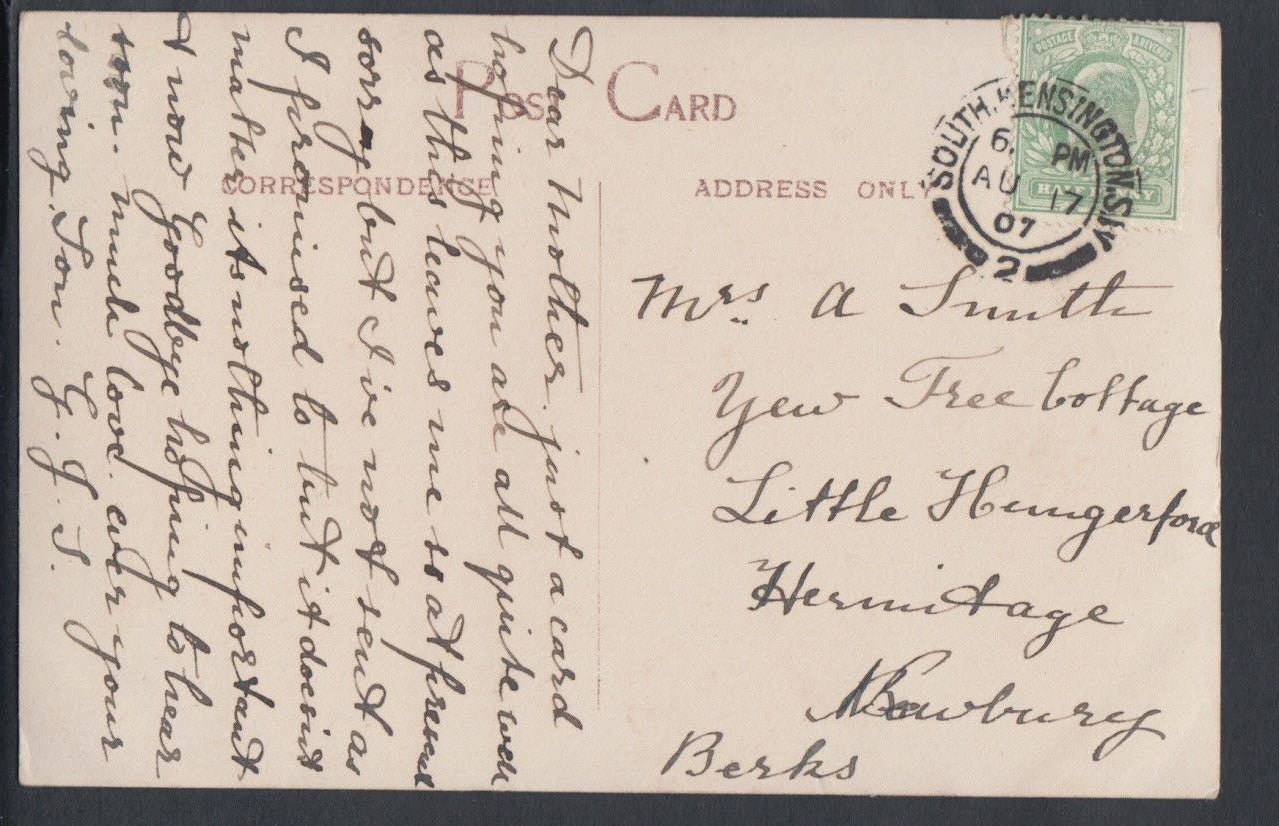 POST CARD
CORRESPONDENCE
ADDRESS ONLY
POSTAGE & REVENUE
HALF PENNY
SOUTH KENSINGTON. S.W.
6. PM
AU 17
07
2
Dear Mother. just a card
hoping you are all quite well
as this leaves me so at present
sorry but I've not sent as
I promised to but it doesint
matter its nothing important
& now Goodbye hoping to hear
soon. much love. ever your
loving Son. G. J. S.
Mrs A Smith
Yew Tree Cottage
Little Hungerford
Hermitage
Newbury
Berks